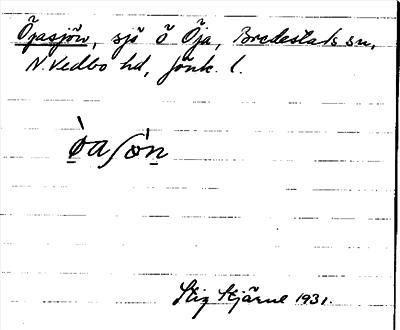 Öjasjön, sjö å Öja, Bredestads sn,
N. Vedbo hd, Jönk. l.
ø̀a ʃøǹ
Stig Stjärne 1931.